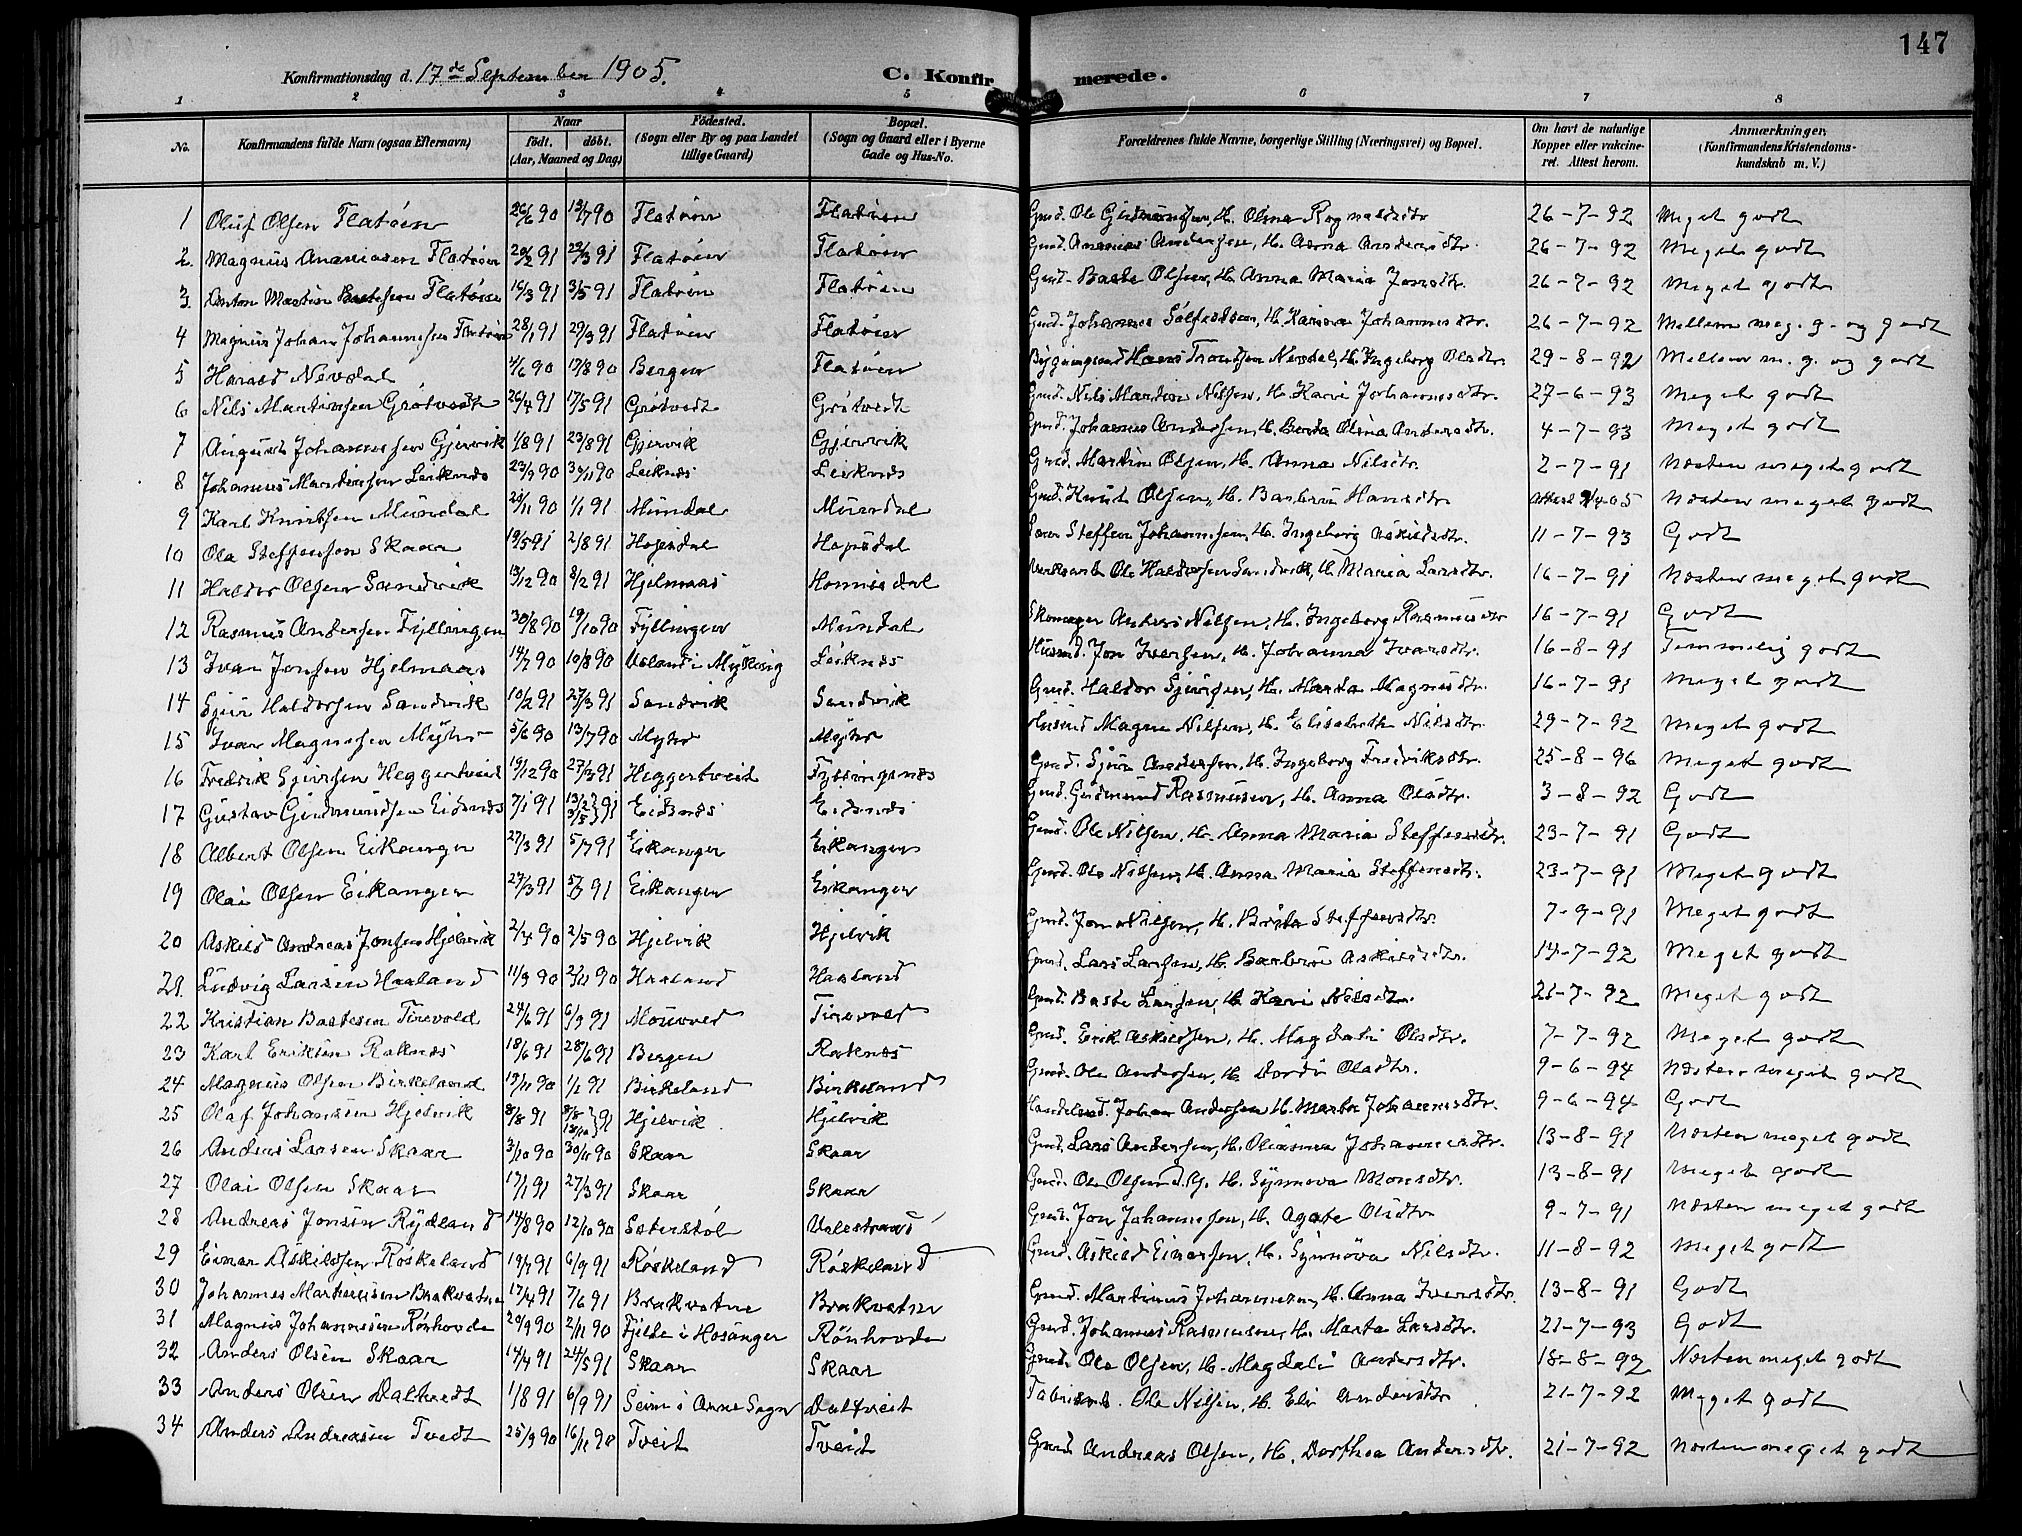 147
Konfirmationsdag d. 17de September 1905.
C. Konfirmerede.
1 2 3 4 5 6 7 8
No. | Konfirmandens fulde Navn (ogsaa Efternavn) | Naar født. døbt. (Aar, Maaned og Dag) | Fødested. (Sogn eller By og paa Landet tillige Gaard) | Bopæl. (Sogn og Gaard eller i Byerne Gade og Hus-No. | Forældrenes fulde Navne, borgerlige Stilling (Næringsvei) og Bopæl. | Om havt de naturlige Kopper eller vakcineret. Attest herom. | Anmærkninger. (Konfirmandens Kristendomskundskab m. V.)
1 Oluf Olsen Flatøen 26/6 90 13/7 90 Flatøen Flatøen Gmd. Ole Gudmundsen, H. Olina Ragnasdtr 26-7-92 Meget godt
2. Magnus Ananiasen Flatøen 20/2 91 29/3 91 Flatøen Flatøen Gmd. Ananias Andersen, H. Anna Andersdtr. 26-7-92 Meget godt
3. Anton Martin Bastesen Flatøen 14/3 91 3/5 91 Flatøen Flatøen Gmd. Baste Olsen, H. Anna Maria Jonsdtr. 26-7-92 Meget godt
4 Magnus Johan Johannesen Flatøen 28/1 91 29/3 91 Flatøen Flatøen Gmd. Johannes H. Karina Johannesdtr. 26-7-92 Mellem meg. g. og godt
5 Harald Nevdal 4/6 90 17/8 90 Bergen Flatøen Hans Nevdal, H. Ingeborg Olsdtr. 29-8-92 Mellem m. g. og godt
6 Nils Martinsen Grøtvedt 26/4 91 17/5 91 Grøtvedt Grøtvedt Gmd. Nils Martin Nilsen, H. Kari Johannesdtr. 27-6-93 Meget godt
7 August Johannesen Gjervik 1/8 91 23/8 91 Gjervik Gjervik Gmd. Johannes Andersen, H. Berta Olina Andersdtr. 4-7-93 Meget godt
8 Johannes Martinsen Leiknes 23/9 90 30/11 90 Leiknes Leiknes Gmd. Martin Olsen, H. Anna Nilsdtr. 2-7-91 Næsten meget godt
9 Karl Knutsen Mundal 20/11 90 1/1 91 Mundal Mundal Gmd. Knut Olsen, H. Barbru Hansdtr. Attest 05 Næsten meget godt
10 Ole Steffensen Skaar 19/5 91 2/8 91 Hopsdal Hopsdal Steffen Johannesen, H. Ingeborg Askildsdtr. 11-7-93 Godt
11 Haldor Olsen Sandvik 13/12 90 8/2 91 Hjelmaas Hopsdal Ole Haldorsen Sandvik, H. Maria Larsdtr. 16-7-91 Næsten meget godt
12 Rasmus Andersen Fyllingen 30/8 90 19/10 90 Fyllingen Mundal Skomager Anders Nilsen, H. Ingeborg Rasmusdtr 16-7-91 Godt
13 Ivar Jonsen Hjelmaas 14/7 90 10/8 90 i Myking Leiknes Husmd. Jon Iversen, H. Johanna Ivarsdtr. 16-8-91 Temmelig godt
14 Sjur Haldorsen Sandvik 10/2 91 27/3 91 Sandvik Sandvik Gmd. Haldor Sjursen, H. Marta Magnusdtr. 16-7-91 Meget godt
15 Ivar Magnesen Myhr 5/6 90 13/7 90 Myhr Myhr Husmd Magne Nilsen, H. Elisabeth Nilsdtr. 29-7-92 Meget godt
16 Fredrik Sjursen Heggertveit 19/12 90 27/3 91 Heggertveit Fyllingsnes Gmd. Sjur Andersen, H. Ingeborg Fredriksdtr. 25-8-96 Meget godt
17 Gustav Gudmundsen Eidsnes 7/1 91 13/2 3/5 } 91 Eidsnes Eidsnes Gmd. Gudmund Rasmusen, H. Anna Olsdtr. 3-8-92 Godt
18 Albert Olsen Eikanger 27/3 91 5/7 91 Eikanger Eikanger Gmd. Ole Nilsen, H. Anna Maria Steffensdtr. 23-7-91 Godt
19 Olai Olsen Eikanger 27/3 91 5/7 91 Eikanger Eikanger Gmd. Ole Nilsen, H. Anna Maria Steffensdtr. 23-7-91 Meget godt
20 Askild Andreas Jonsen Hjelvik 2/4 90 2/5 90 Hjelvik Hjelvik Gmd. Jon Nilsen, H. Brita Steffensdtr. 7-9-91 Meget godt
21. Ludvig Larsen Haaland 11/9 90 2/11 90 Haaland Haaland Gmd. Lars Larsen, H. Barbru Askildsdtr. 14-7-92 Meget godt
22 Kristian Bastesen Tirevold 24/6 91 6/9 91 Tirevold Gmd. Baste Larsen, H. Kari Nilsdtr. 21-7-92 Meget godt
23 Karl Eriksen Raknes 18/6 91 28/6 91 Bergen Raknes Gmd. Erik Askildsen, H. Magdali Olsdtr. 7-7-92 Meget godt
24 Magnus Olsen Birkeland 19/11 90 1/1 91 Birkeland Birkeland Gmd. Ole Andersen, H. Dordi Olsdtr. 9-6-94 Næsten meget godt
25 Olaf Johansen Hjelvik 8/8 91 8/8 18/10 } 91 Hjelvik Hjelvik Handelsmd. Johan Andersen H. Marta Johannesdtr. 9-6-94 Godt
26 Anders Larsen Skaar 3/10 90 30/11 90 Skaar Skaar Gmd. Lars Andersen, H. Johannesdtr. 13-8-91 Næsten meget godt
27 Olai Olsen Skaar 17/1 91 27/3 91 Skaar Skaar Gmd. Ole Olsen d. y. H. Synneva Monsdtr. 13-8-91 Meget godt
28 Andreas Jonsen Rydland 14/8 90 12/10 90 Sæterstøl Valestrand Gmd. Jon Johannesen, H. Agate Olsdtr 9-7-91 Næsten meget godt
29 Einar Askildsen Røskeland 19/7 91 6/9 91 Røskeland Røskeland Gmd. Askild Einarsen, H. Synnøva Nilsdtr. 11-8-92 Meget godt
30 Johannes Martinusen Brakvatne 17/4 91 7/6 91 Brakvatne Brakvatne Gmd. Martinus Johannesen, H. Anna Iversdtr. 13-8-91 Godt
31 Magnus Johannesen Rønhovde 20/9 90 2/11 90 Fjelde i Hosanger Rønhovde Gmd. Johannes Rasmusen, H. Marta Larsdtr. 21-7-93 Godt
32 Anders Olsen Skaar 14/4 91 24/5 91 Skaar Skaar Gmd. Ole Olsen, H. Magdali Andersdtr. 18-8-92 Næsten meget godt
33 Anders Olsen Daltvedt 1/8 91 6/9 91 Seim i Arne Sogn Daltveit Ole Nilsen, H. Eli Andersdtr 21-7-92 Meget godt
34 Anders Andreasen Tvedt 25/9 90 16/11 90 Tveit Tveit Gmd. Andreas Olsen, H. Dorthea Andersdtr. 21-7-92 Næsten meget godt